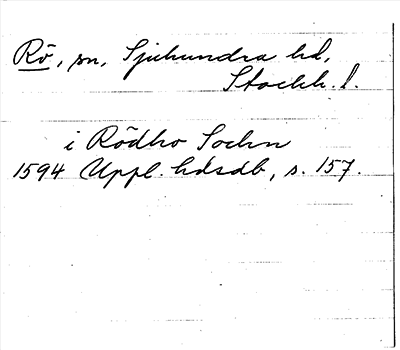 Rö, sn, Sjuhundra hd,
Stockh. l.
i Rödho Sochn
1594 Uppl. hdsdb, s. 157.